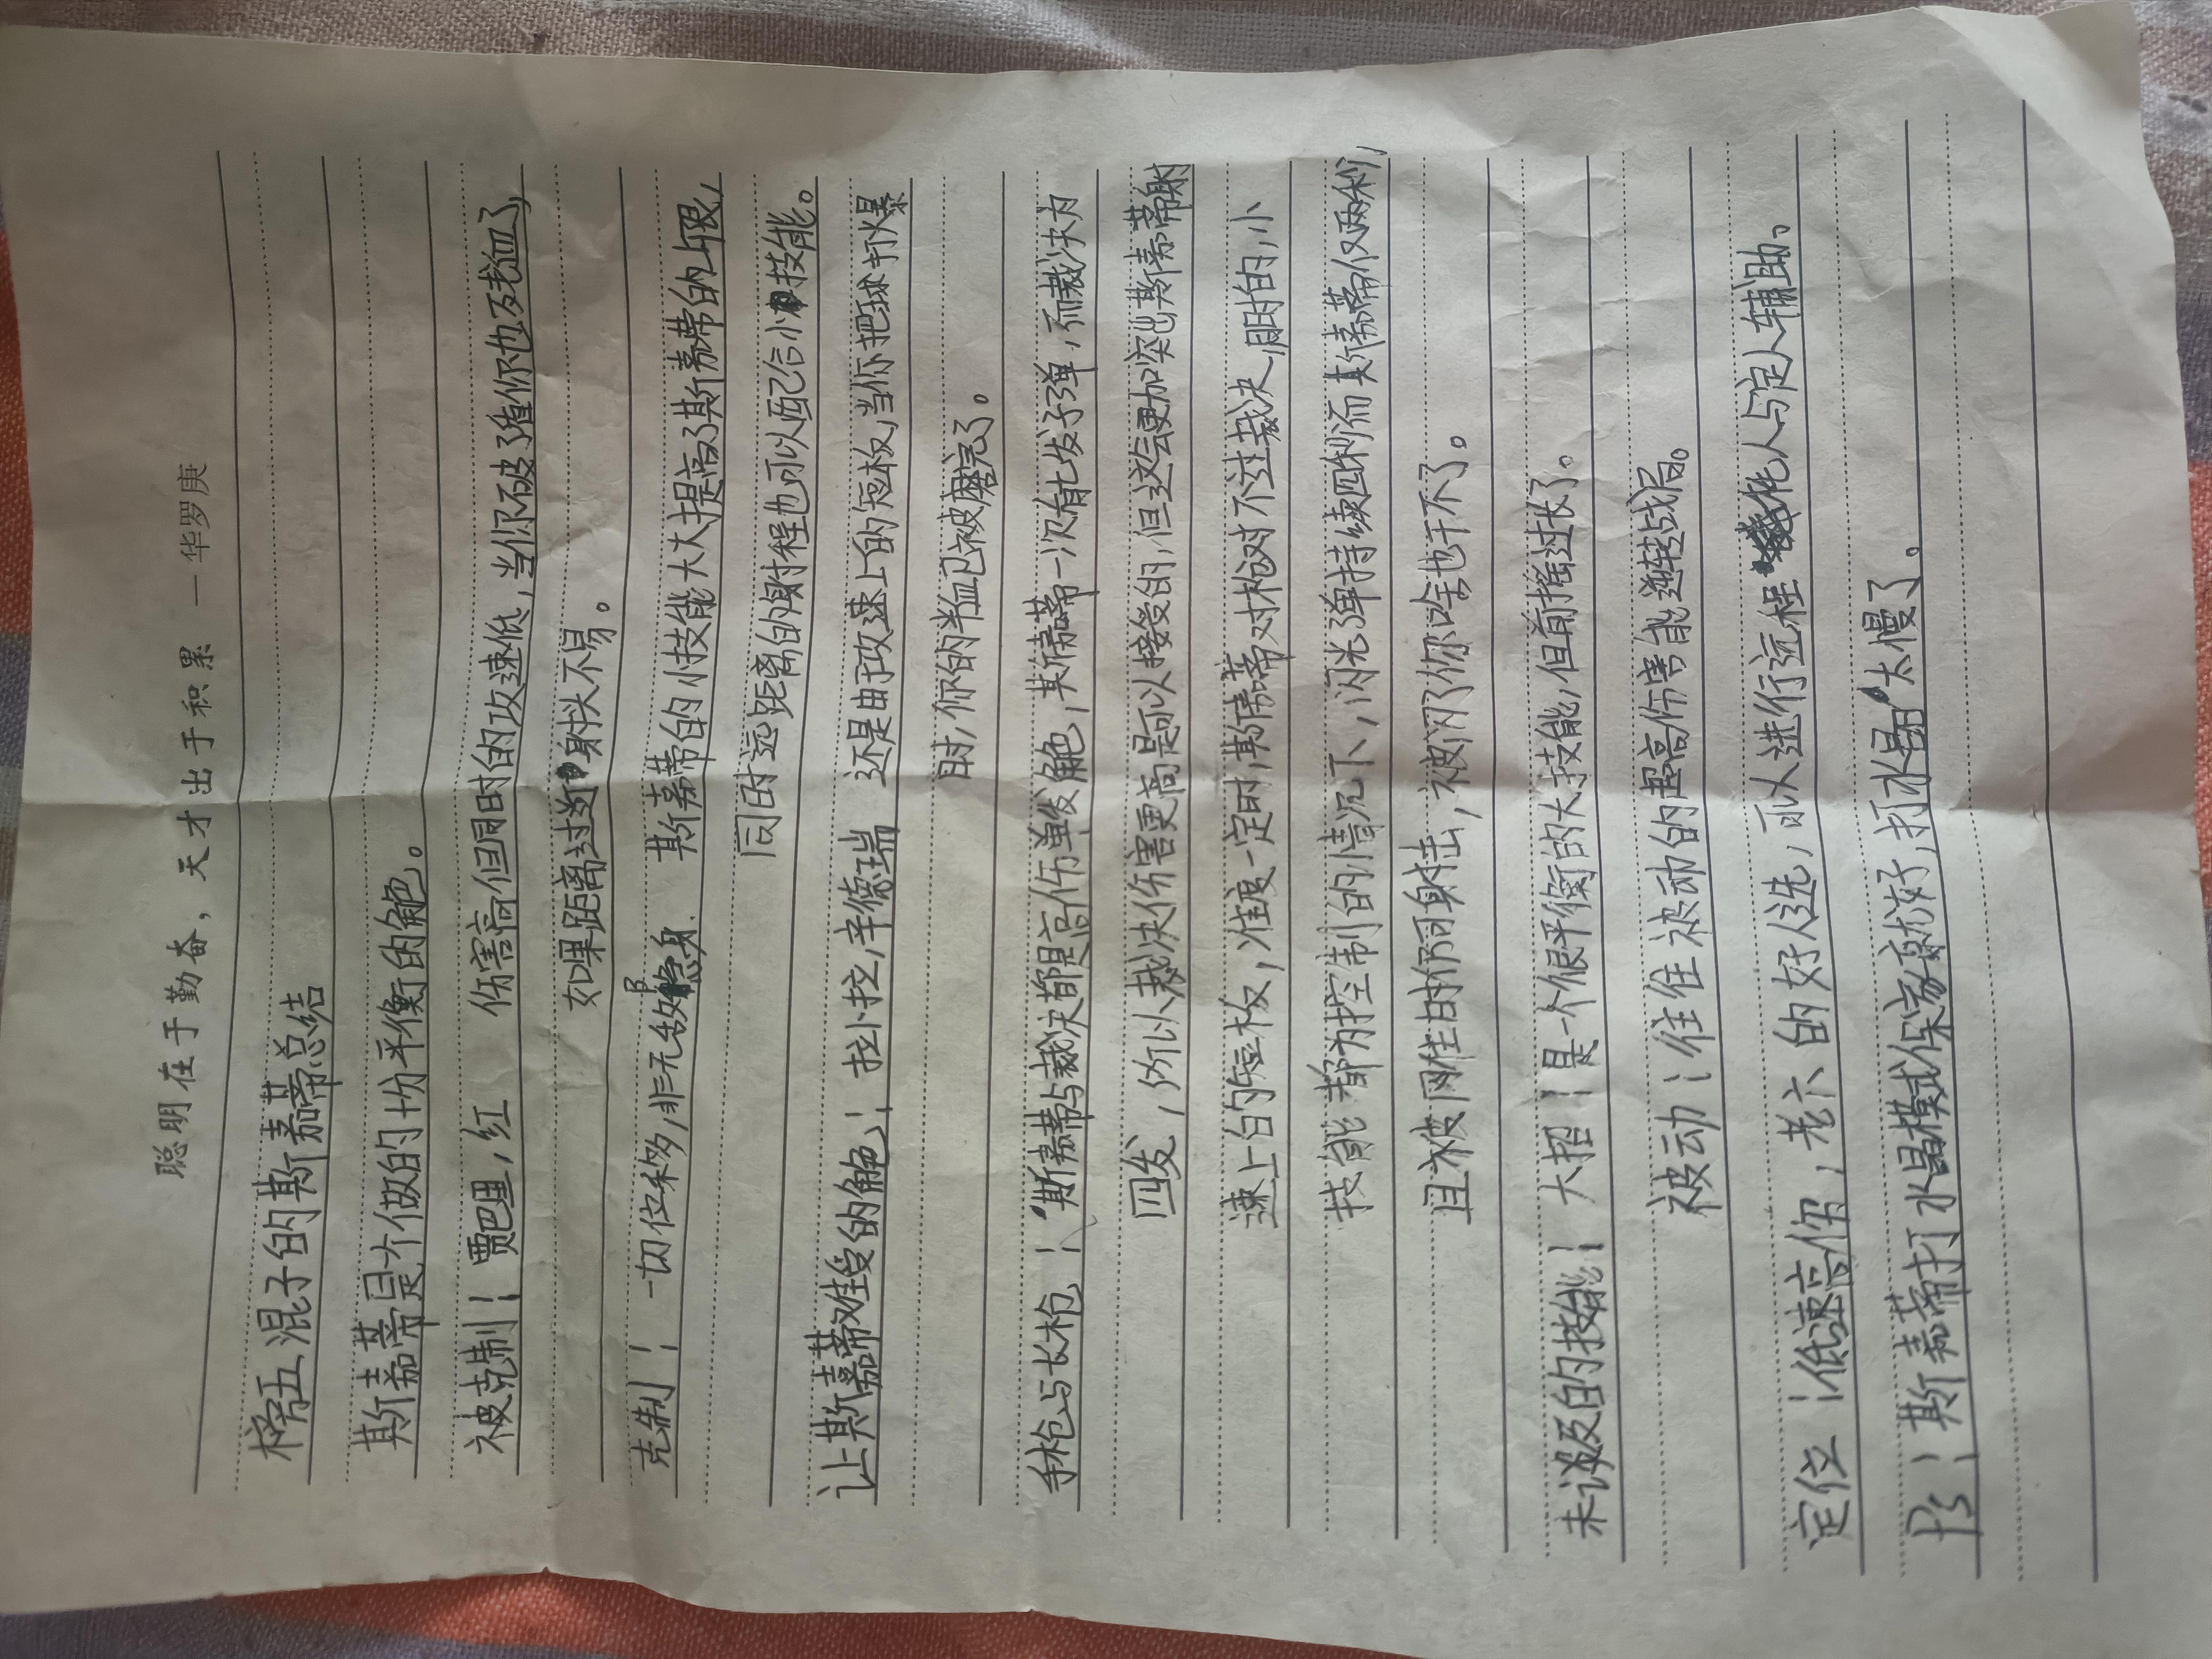 聪明在于勤奋，天才出于积累 —华罗庚
榜五混子的斯嘉蒂总结
斯嘉蒂是个做的十分平衡的角色。
被克制：贾巴里，红 伤害高但同时的攻速低，当你不破了盾你也残血了，
如果距离过近射头不易。
克制：一切位移，非无敌隐身 斯嘉蒂的小技能大大提高了斯嘉蒂的上限，
同时远距离的射程也可以配合小技能。
让斯嘉蒂难受的角色：拉小拉，辛德瑞 还是由于攻速上的短板，当你把球打爆
时，你的半血已被磨完了。
手枪与长枪：斯嘉蒂与裁决都是高伤单发角色，斯嘉蒂一次有七发子弹，而裁决为
四发，所以裁决伤害更高是可以接受的，但这会更加突出斯嘉蒂射
速上的短板，准度一定时，斯嘉蒂对枪对不过裁决，同时的，小
技能都为控制的情况下，闪光弹持续四秒而斯嘉蒂仅两秒，
且被网住的仍可射击，被闪了你啥也干不了。
未谈及的技能：大招：是一个很平衡的大技能，但前摇过长了。
被动：往往被动的超高伤害能逆转战局。
定位：低速高伤，老六的好人选，可以进行远程化人与定人辅助。
Ps：斯嘉蒂打水晶模式保家就好，打水晶太慢了。